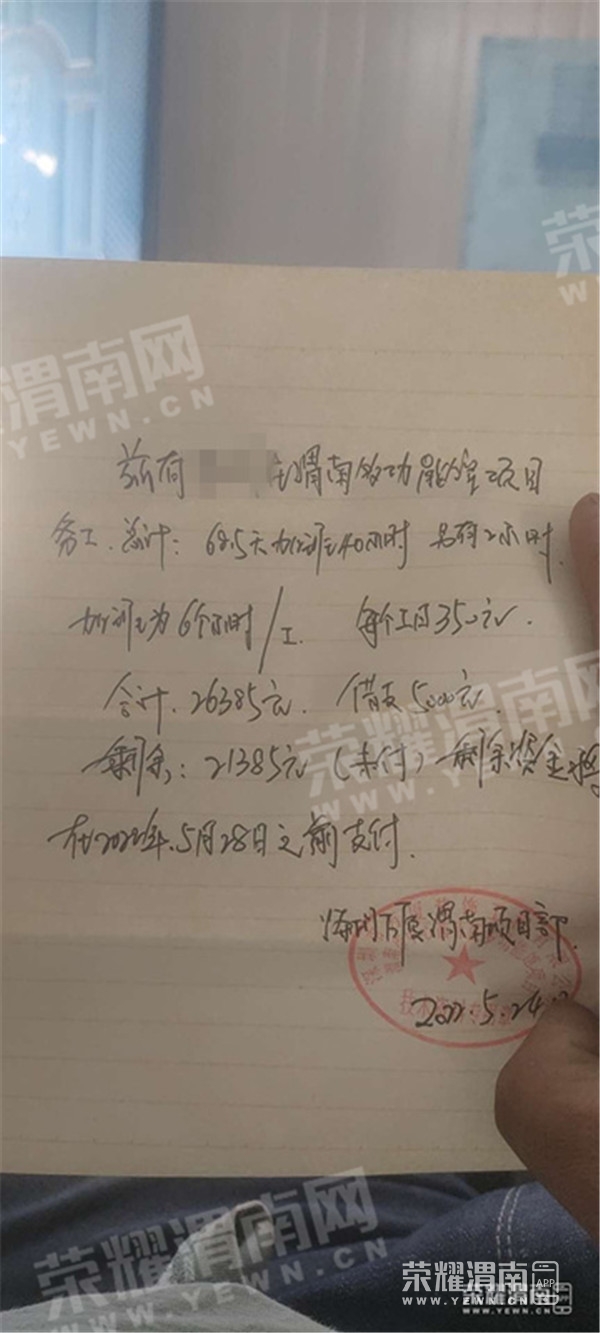 荣耀渭南网
WWW.YEWN.CN
兹有 在渭南多功能室项目
务工.总计:68.5天加班40小时 另有2小时.
加班为6个小时/工. 每个工日350元.
合计.26385元. 借支5000元.
剩余:21385元(未付)剩余资金将
在2022年.5月28日之前支付.
渭南项目部.
2022.5.24.
荣耀渭南网
WWW.YEWN.CN
荣耀渭南网
WWW.YEWN.CN
荣耀渭南
APP
WWW.YEWN.CN